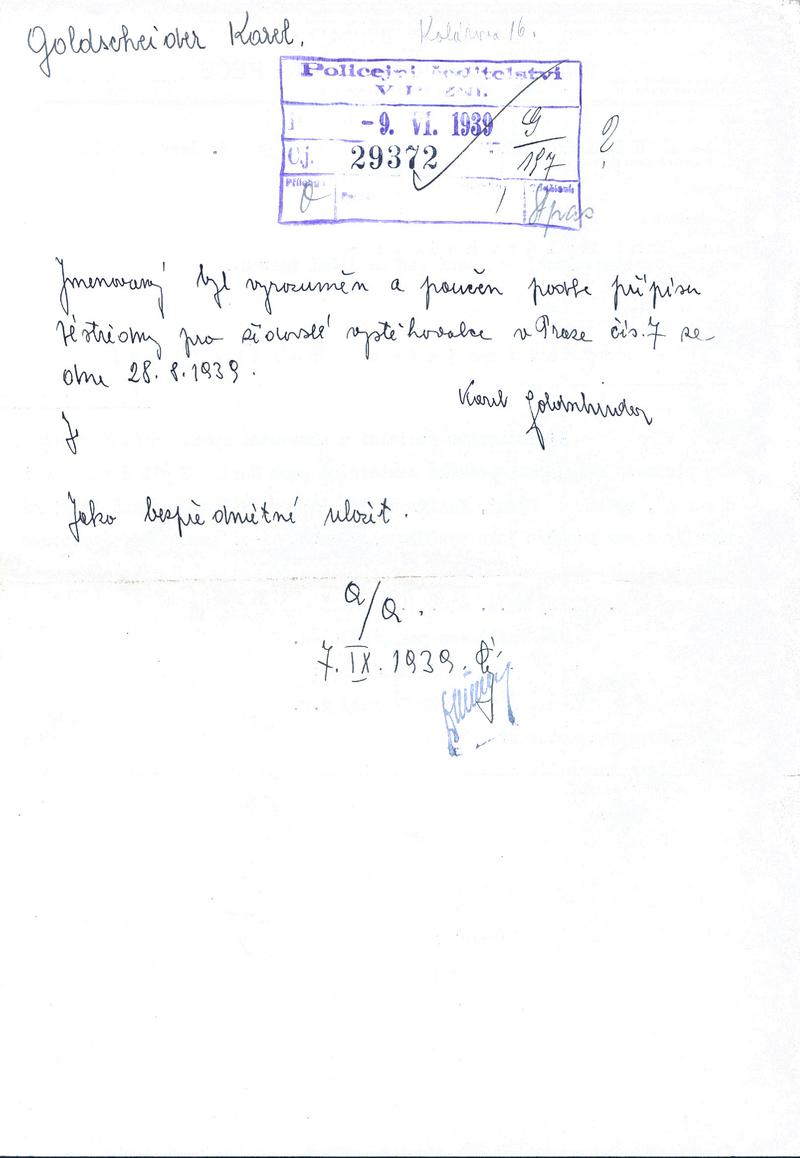 Goldscheider Karel.
Kolárova 16.
Policejní ředitelství
V PLZNI.
-9. VI. 1939
9/197
?
Čj. 29372
Přílohy:
0
1
Jmenovaný byl vyrozuměn a poučen podle přípisu
Ústředny pro židovské vystěhovalce v Praze čís. 7 ze
dne 28. 8. 1939.
Karel Goldscheider
Jako bezpředmětné uložit.
a/a.
7. IX. 1939.